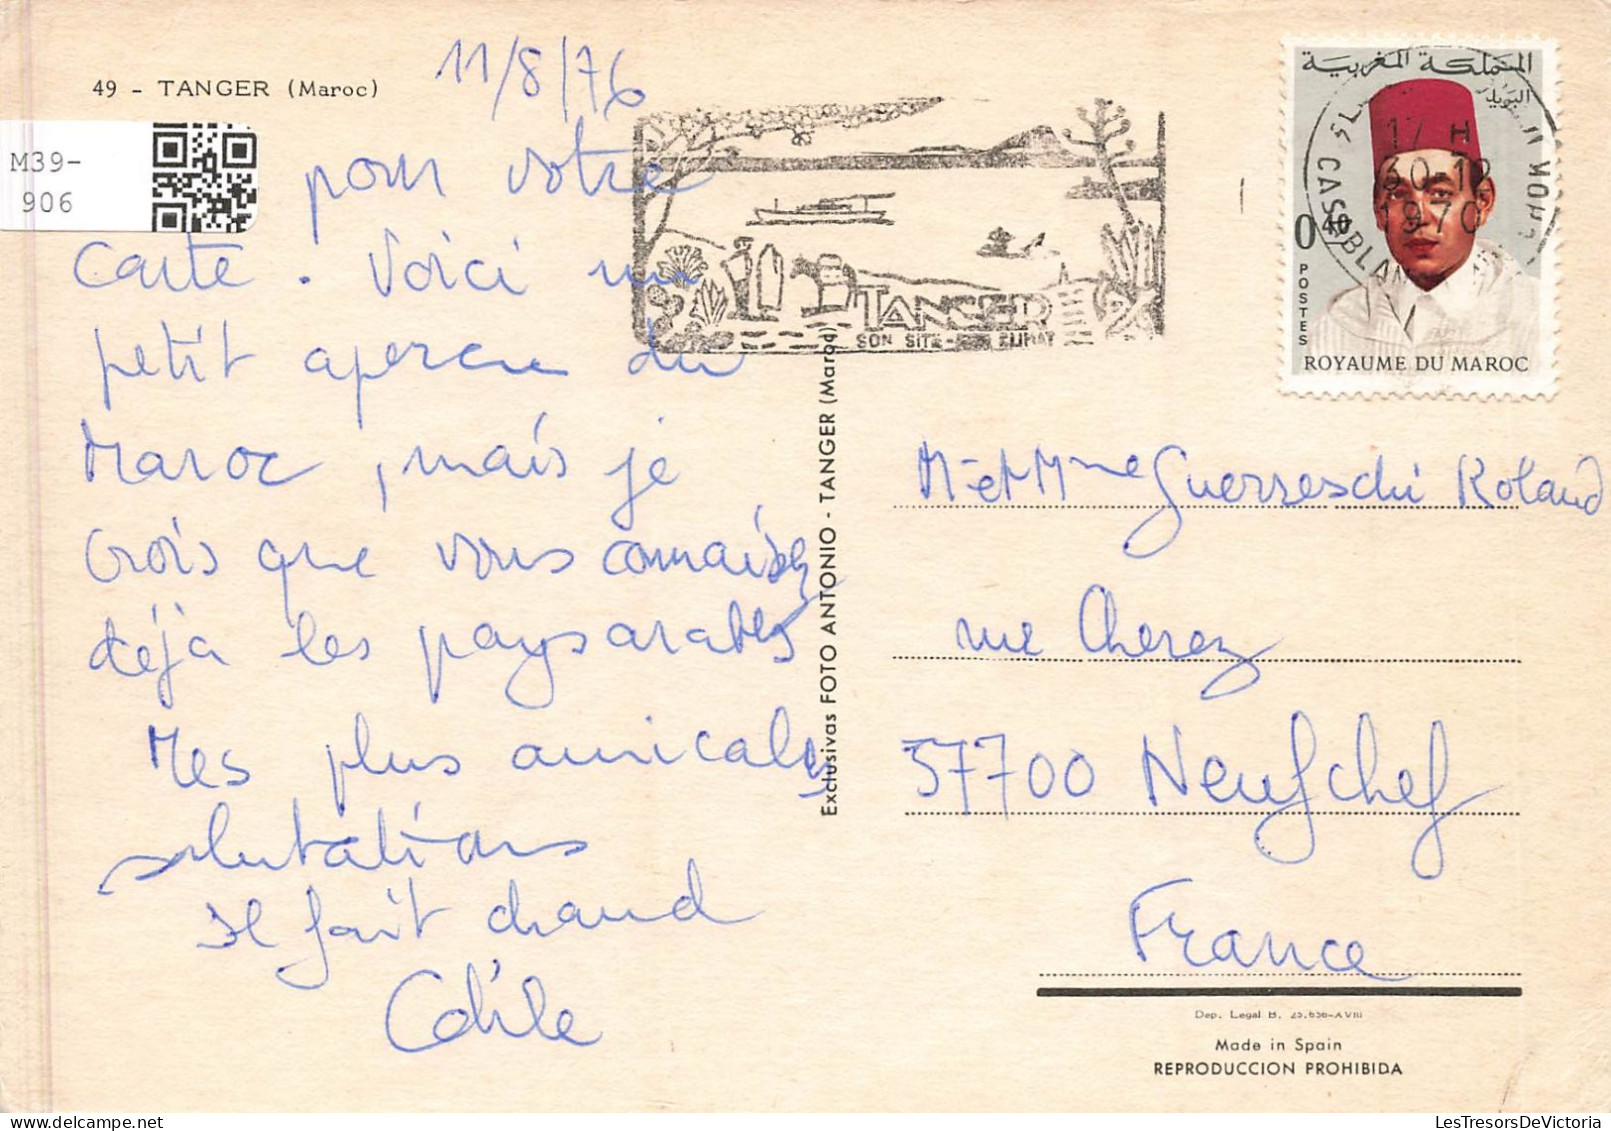 49 - TANGER (Maroc)
11/8/76
M39-
906
pour votre
carte. Voici un
petit apercu du
Maroc, mais je
crois que vous connaisez
déjà les pays arabes
Mes plus amicales
salutations
Il fait chaud
Odile
TANGER
SON SITE - SON CLIMAT
Exclusivas FOTO ANTONIO - TANGER (Maroc)
المملكة المغربية
البريد
17 H
30-12
1970
CASABLANCA
0,40
POSTES
ROYAUME DU MAROC
M et Mme Guerreschi Roland
rue Cherez
57700 Neufchef
France
Dep. Legal B. 25.656-XVIII
Made in Spain
REPRODUCCION PROHIBIDA
LesTresorsDeVictoria